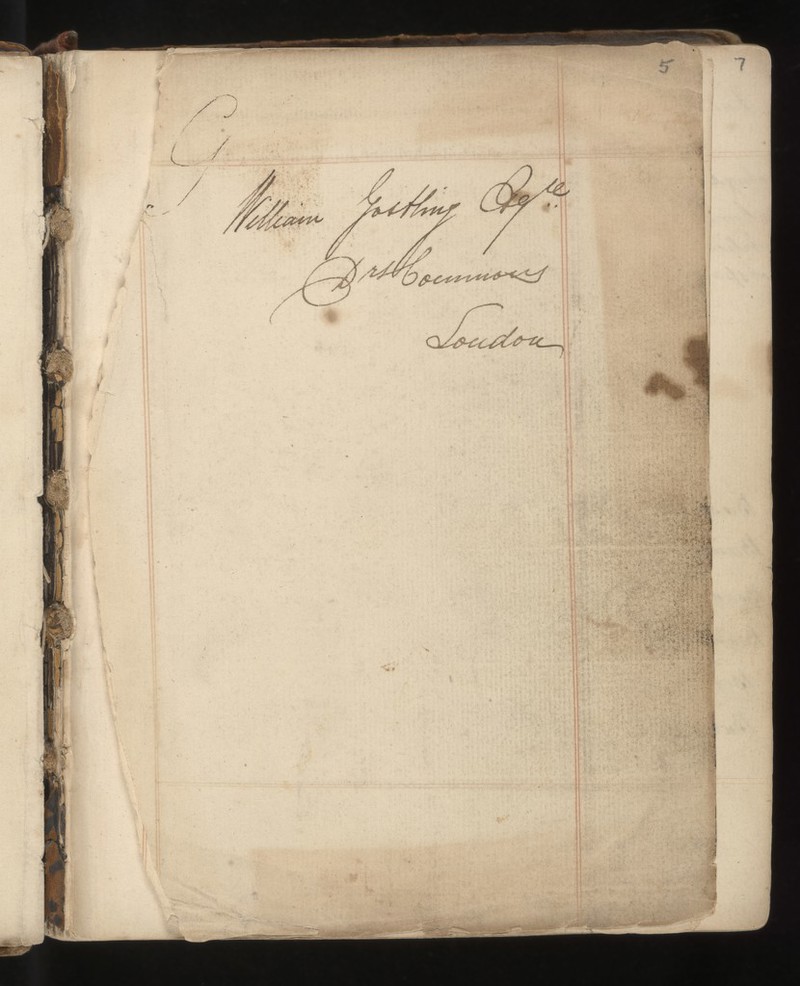 5 7
G
William Gostling Esqre.
Drs Commons
London